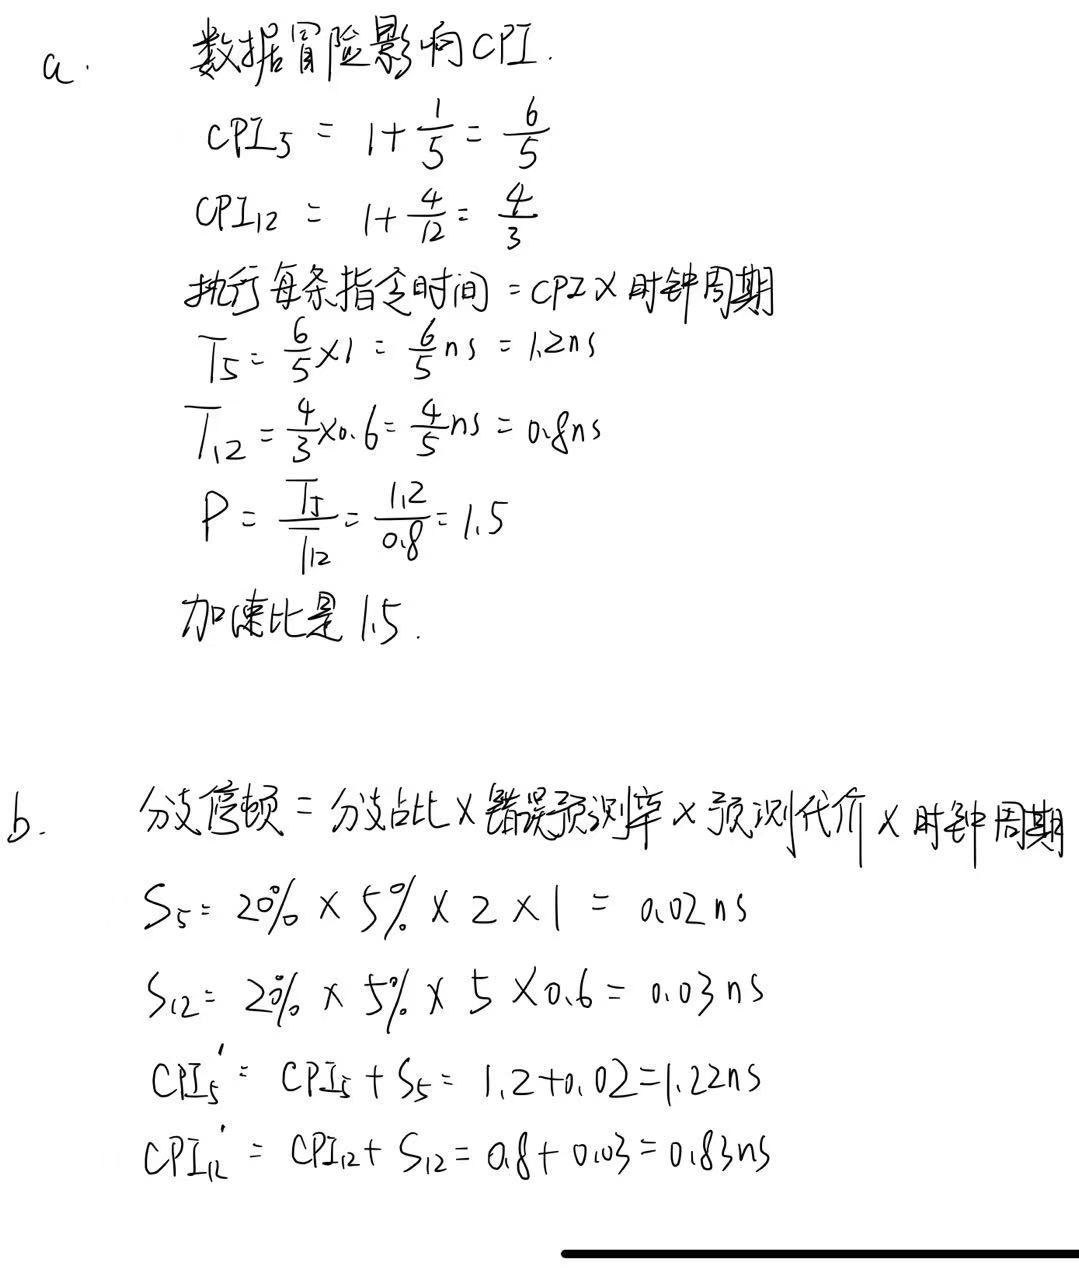 a. 数据冒险影响CPI.
CPI₅ = 1+1/5 = 6/5
CPI₁₂ = 1+4/12 = 4/3
执行每条指令时间 = CPI × 时钟周期
T₅ = 6/5×1 = 6/5 ns = 1.2ns
T₁₂ = 4/3×0.6 = 4/5 ns = 0.8ns
P = T₅/T₁₂ = 1.2/0.8 = 1.5
加速比是 1.5.
b. 分支停顿 = 分支占比 × 错误预测率 × 预测代价 × 时钟周期
S₅ = 20% × 5% × 2 × 1 = 0.02ns
S₁₂ = 20% × 5% × 5 × 0.6 = 0.03ns
CPI₅' = CPI₅ + S₅ = 1.2+0.02 = 1.22ns
CPI₁₂' = CPI₁₂ + S₁₂ = 0.8 + 0.03 = 0.83ns